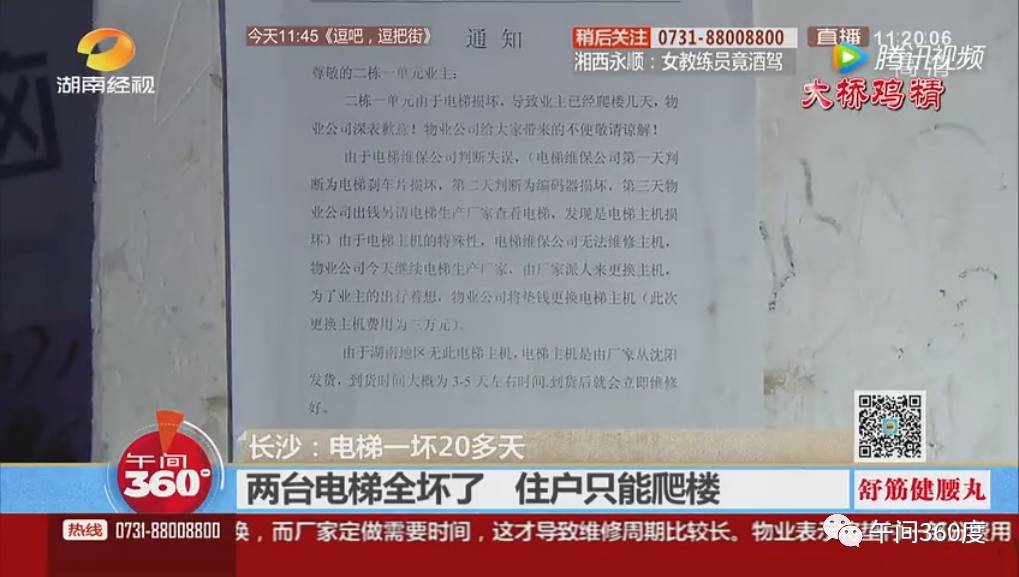 今天11:45《逗吧，逗把街》
稍后关注 0731-88008800
湘西永顺：女教练员竟酒驾
直播 11:20:06
腾讯视频
大桥鸡精
湖南经视
通知
尊敬的二栋一单元业主：
二栋一单元由于电梯损坏，导致业主已经爬楼几天，物
业公司深表歉意！物业公司给大家带来的不便敬请谅解！
由于电梯维保公司判断失误，（电梯维保公司第一天判
断为电梯刹车片损坏，第二天判断为编码器损坏，第三天物
业公司出钱另请电梯生产厂家查看电梯，发现是电梯主机损
坏）由于电梯主机的特殊性，电梯维保公司无法维修主机，
物业公司今天继续电梯生产厂家，由厂家派人来更换主机，
为了业主的出行着想，物业公司将垫钱更换电梯主机（此次
更换主机费用为三万元）。
由于湖南地区无此电梯主机，电梯主机是由厂家从沈阳
发货，到货时间大概为3-5天左右时间.到货后就会立即维修
好。
长沙：电梯一坏20多天
午间
360°
两台电梯全坏了 住户只能爬楼
舒筋健腰丸
热线 0731-88008800 换，而厂家定做需要时间，这才导致维修周期比较长。物业表示 费用
午间360度